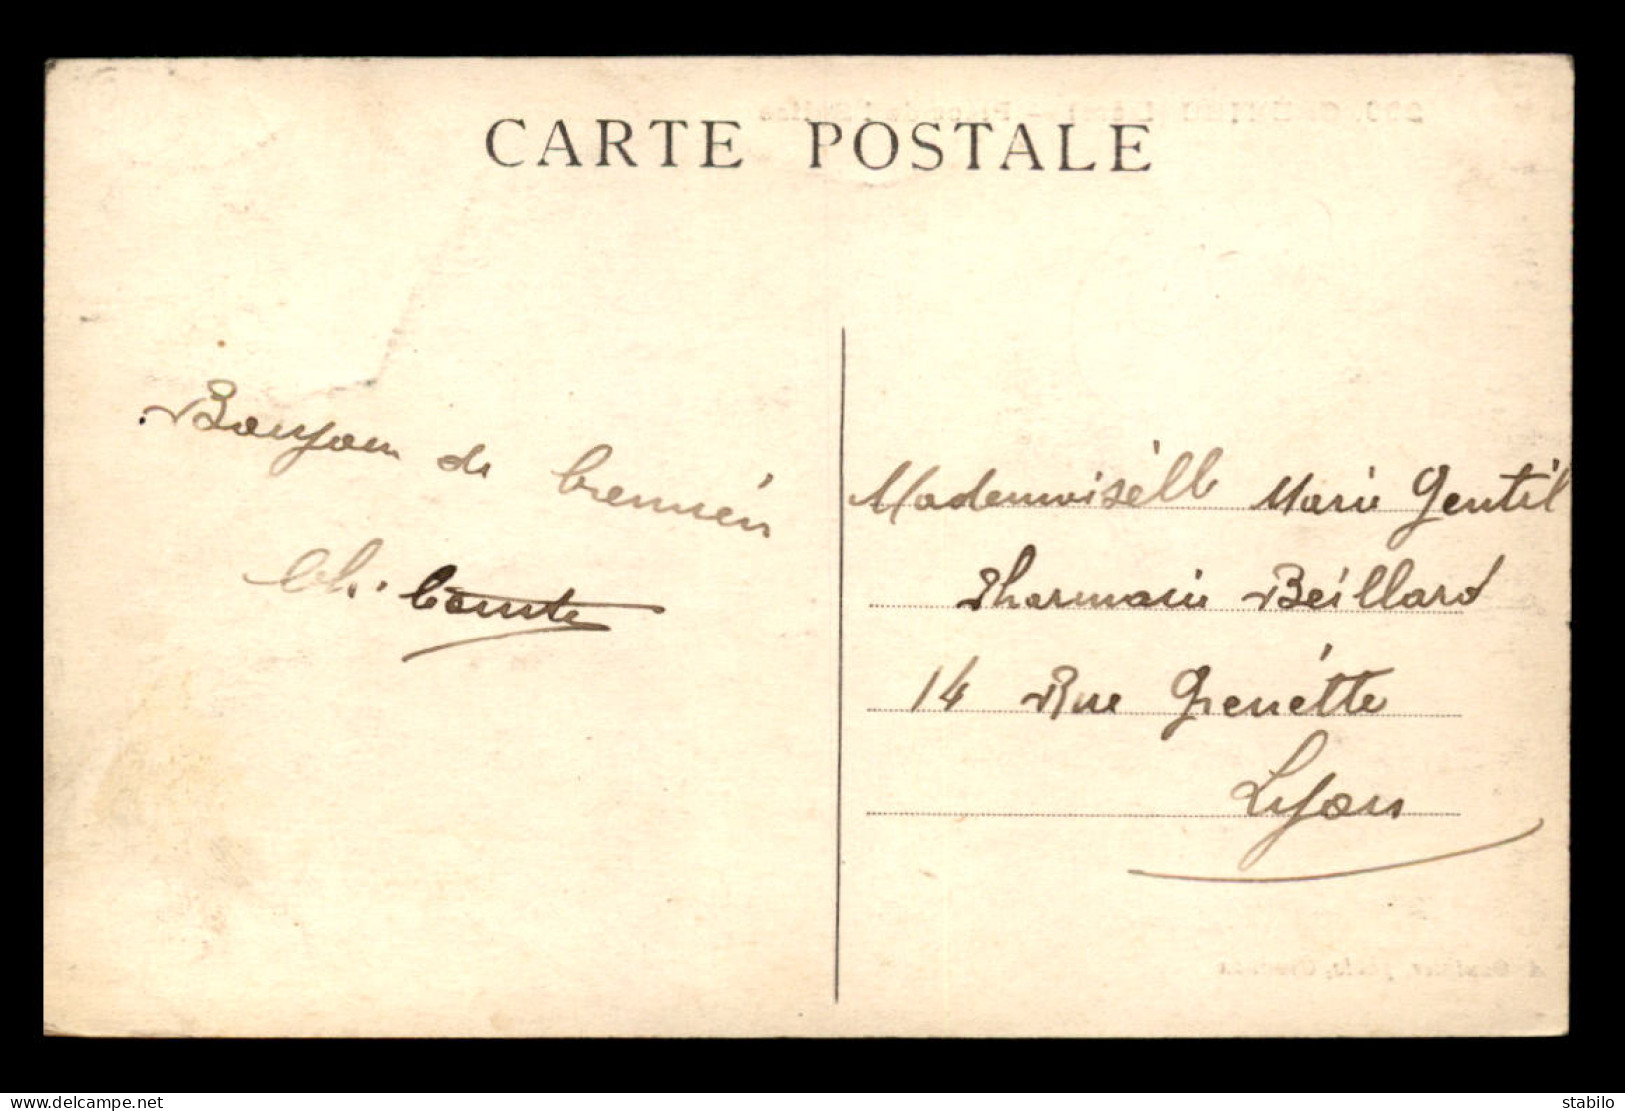 CARTE POSTALE
Bonjour de Cremieu
Ch. Comte
Mademoiselle Marie Gentil
Pharmacie Beillard
14 Rue Grenétte
Lyon
www.delcampe.net
stabilo